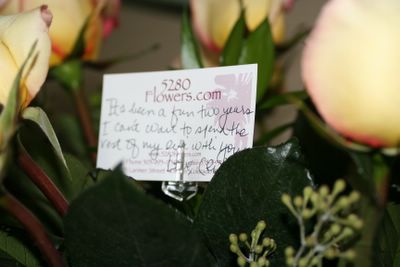 5280
Flowers.com
It's been a fun two years
I can't wait to spend the
rest of my life with you
Love